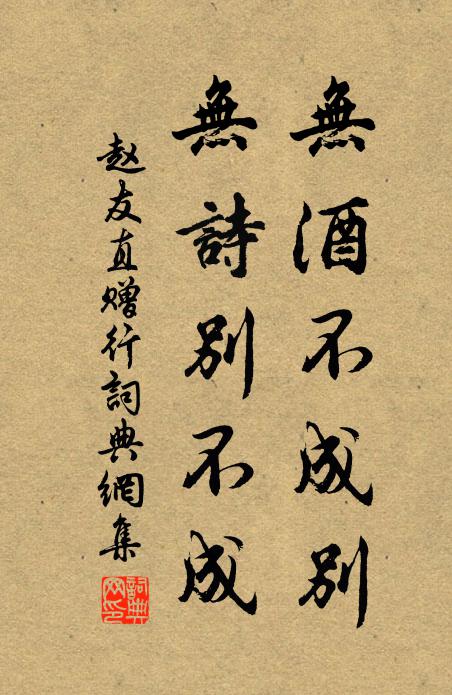 無酒不成別
無詩別不成
赵友直赠行詞典網集
詞典
网印